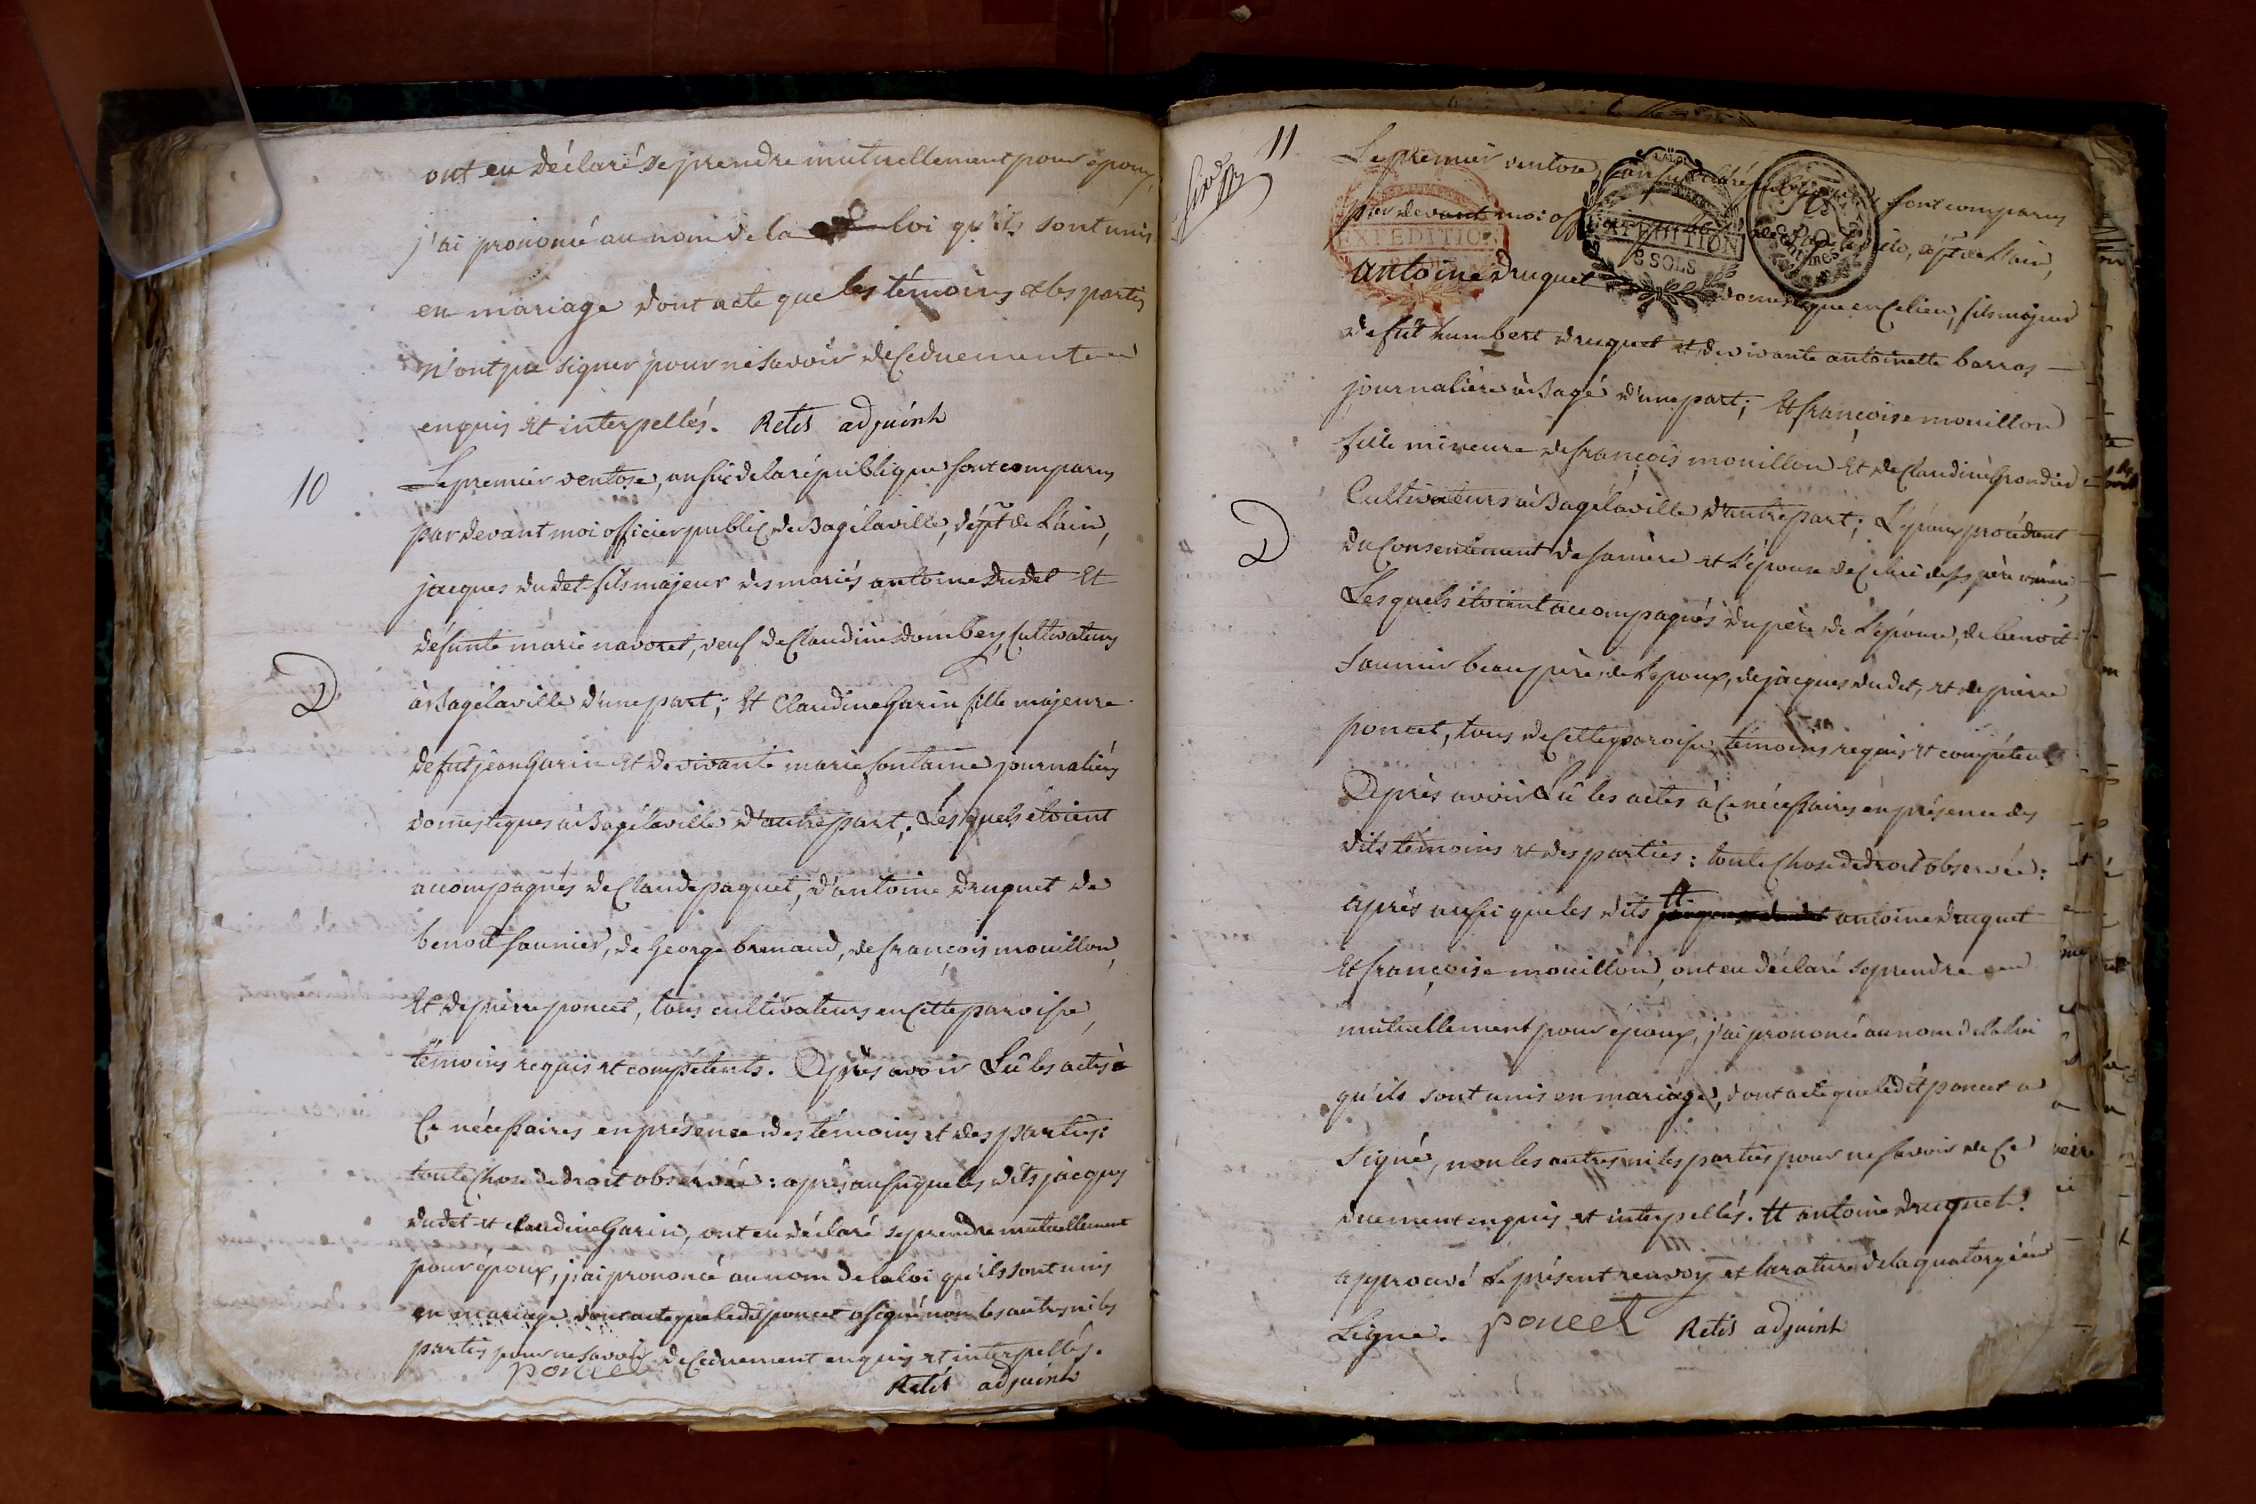 ont eu déclaré se prendre mutuellement pour époux,
j'ai prononcé au nom de la loi qu'ils sont unis
en mariage dont acte que les témoins et les parties
n'ont pu signer pour ne savoir de ce duement
enquis et interpellés. Retis adjuint
10
Le premier ventose, an six de la république sont comparus
par devant moi officier public de Bagélaville, dépt de L'ain,
jacques dudet fils majeur des mariés antoine Dudet Et
défunte marie navoret, veuf de Claudine Dombey, Cultivateurs
D
à Bagélaville d'une part; Et Claudine Garin fille majeure
de fut jean Garin Et de vivante marie fontaine journaliers
domestiques à Bagélaville d'autre part; Lesquels étoient
acompagnés de Claude paquet, d'antoine druguet de
benoit saunier, de George brenaud, de françois mouillon,
Et de pierre poncet, tous cultivateurs en Cette paroisse,
témoins requis et compétents. Après avoir Lû les actes à
Ce nécessaires en présence des témoins et des parties:
toute Chose de droit observée: après aussi que les dits jacques
dudet et claudine Garin, ont eu déclaré se prendre mutuellement
pour époux, j'ai prononcé au nom de la loi qu'ils sont unis
en mariage dont acte que le dit poncet a signé non les autres ni les
parties pour ne savoir de Ce duement enquis et interpellés.
Poncet
Retis adjuint
11
Le premier ventose, an six de la république sont comparus
par devant moi dépt de L'ain,
EXPEDITION
EXPEDITION
8 SOLS
antoine druguet domestique en Ce lieu, fils majeur
de fût humbert druguet et de vivante antoinette barras
journalière à Bagé d'une part; Et françoise mouillon
fille mineure de françois mouillon Et de Claudine Grondier
Cultivateurs à Bagélaville d'autre part; L'époux procédant
D
du Consentement de sa mère et L'épouse de Celui de ses père et mère,
Lesquels étoient accompagnés du père de L'épouse, de benoit
saunier beaupère de L'époux, de jacques dudet, et de pierre
poncet, tous de Cette paroisse, témoins requis et compétents
Après avoir Lû les actes à Ce nécessaires en présence des
dits témoins et des parties: toute Chose de droit observée:
après aussi que les dits # antoine druguet
Et françoise mouillon, ont eu déclaré se prendre
mutuellement pour époux, j'ai prononcé au nom de la loi
qu'ils sont unis en mariage, dont acte que le dit poncet a
signé, non les autres ni les parties pour ne savoir de Ce
duement enquis et interpellés. # antoine Druguet.
approuvé Le présent renvoy et la rature de la quatorzième
Ligne. poncet Retis adjuint